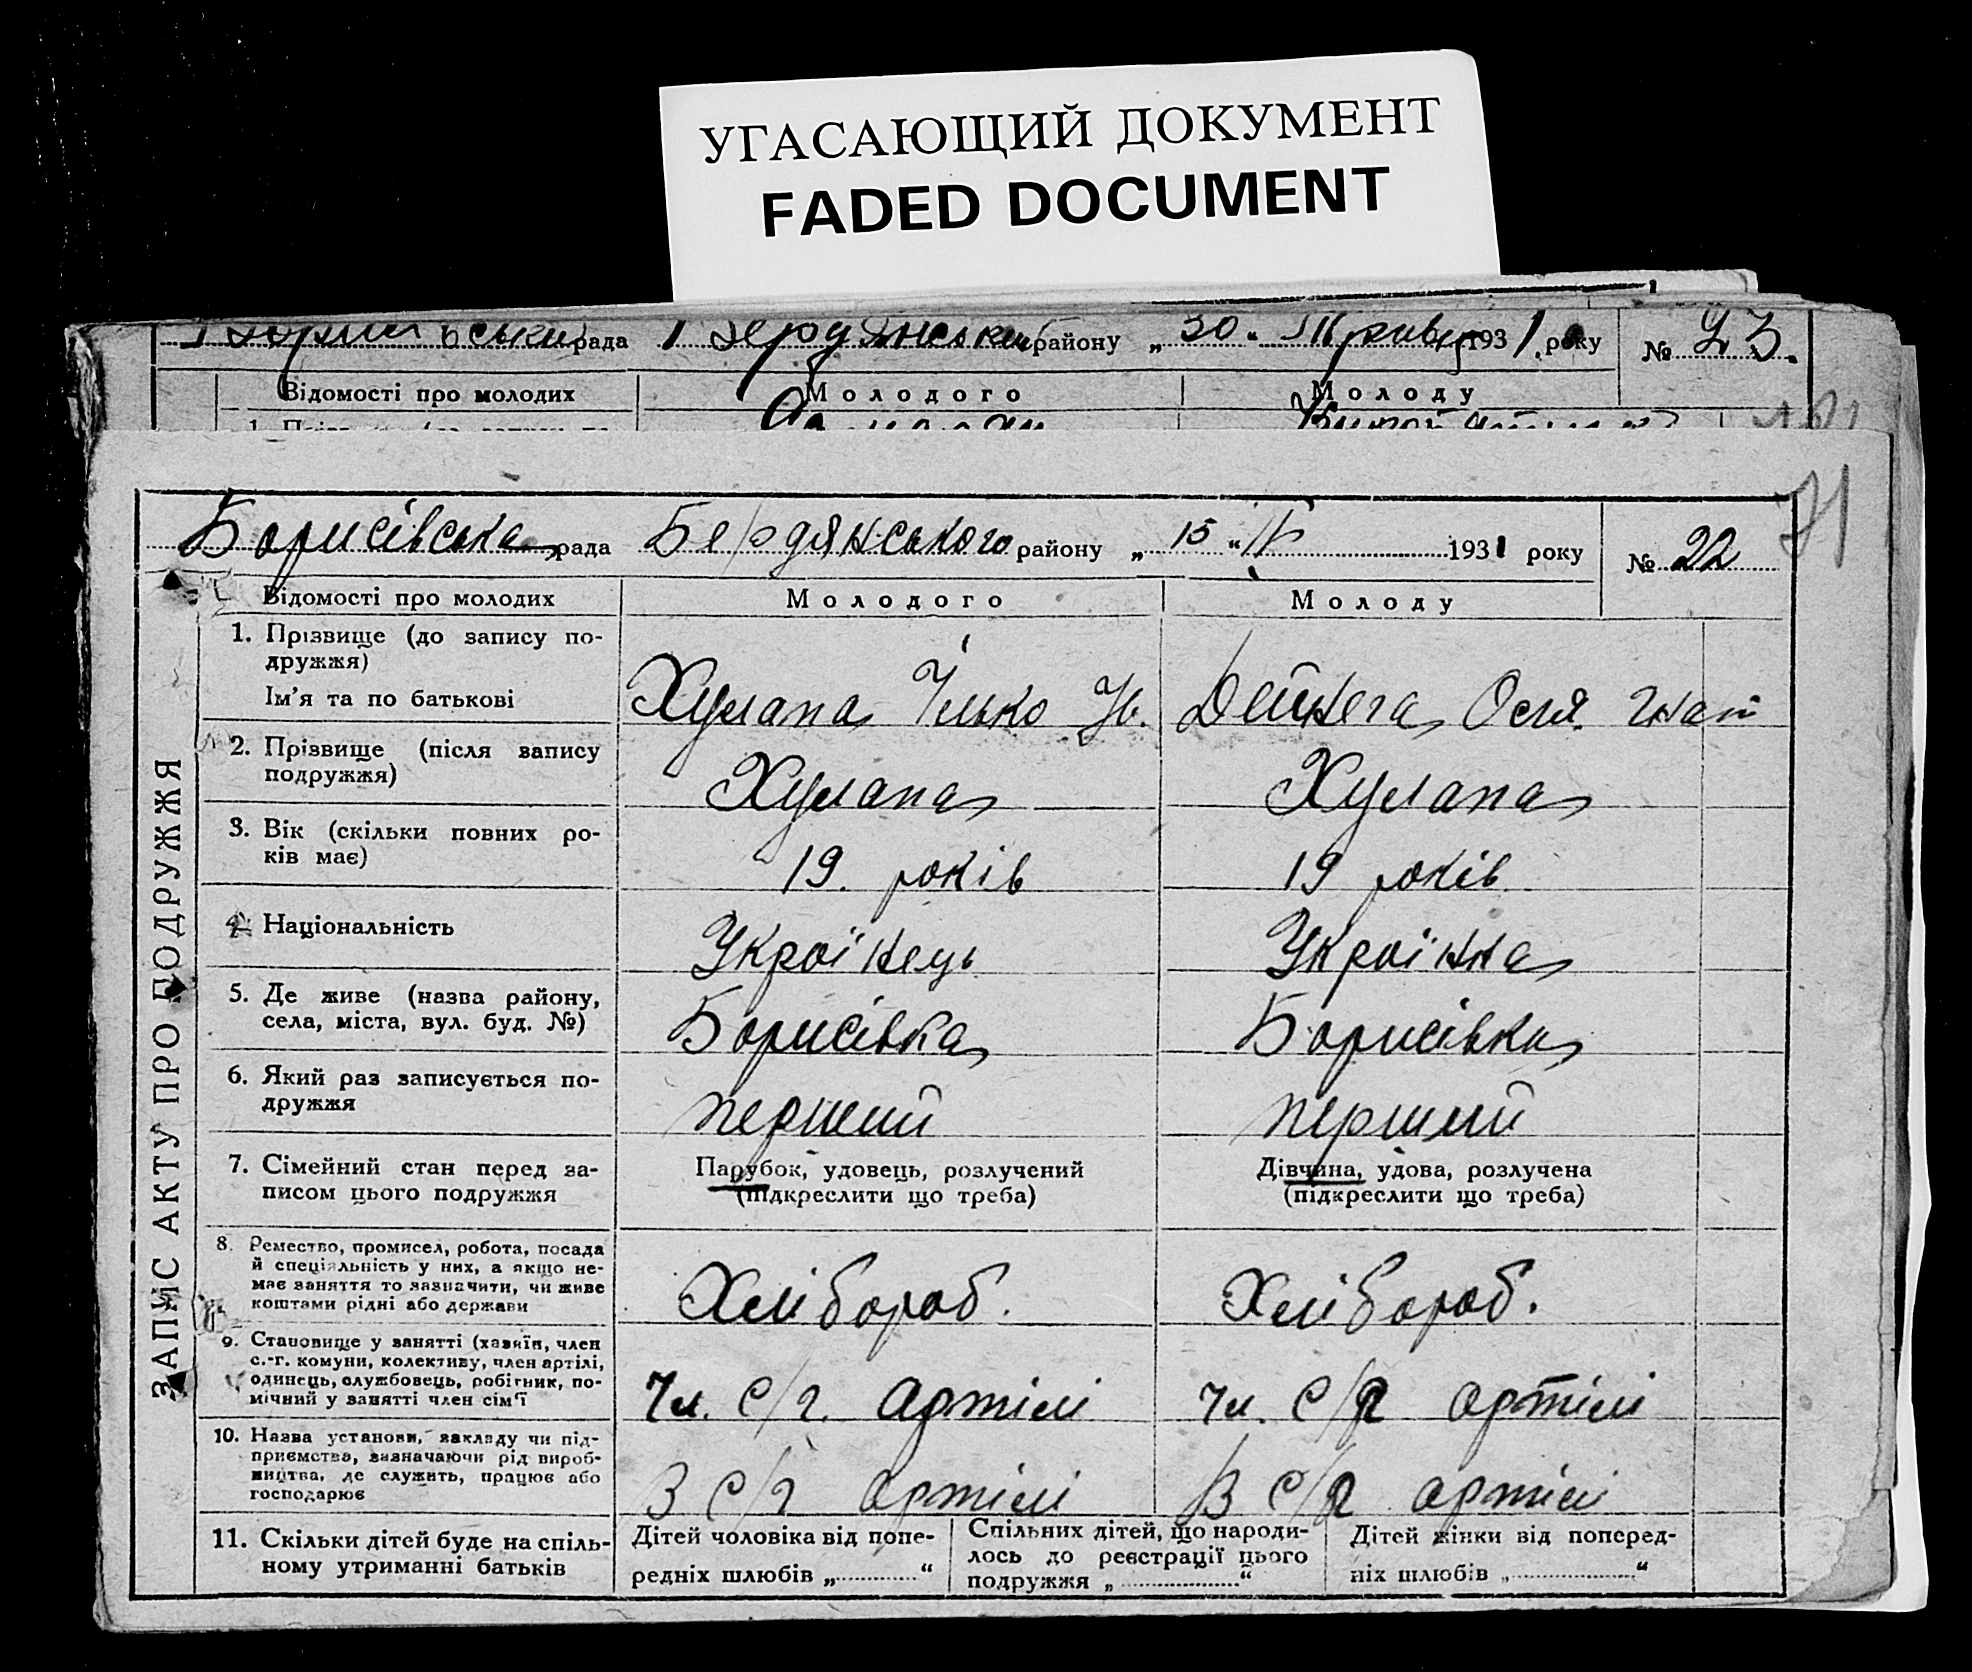 УГАСАЮЩИЙ ДОКУМЕНТ
FADED DOCUMENT
рада району „ 30 “ 1931 року № 23.
Відомості про молодих Молодого Молоду
71
Борисівська рада Бердянського району „ 15 “ IV 1931 року № 22
Відомості про молодих Молодого Молоду
ЗАПИС АКТУ ПРО ПОДРУЖЖЯ
1. Прізвище (до запису по-
дружжя)
Ім’я та по батькові
Хулапа Ілько Ів. Дейнега Гнат
2. Прізвище (після запису
подружжя)
Хулапа Хулапа
3. Вік (скільки повних ро-
ків має)
19. років 19 років
4. Національність
Україїнець Українка
5. Де живе (назва району,
села, міста, вул. буд. №)
Борисівка Борисівка
6. Який раз записується по-
дружжя
перший перший
7. Сімейний стан перед за-
писом цього подружжя
Парубок, удовець, розлучений
(підкреслити що треба)
Дівчина, удова, розлучена
(підкреслити що треба)
8. Ремество, промисел, робота, посада
й спеціяльність у них, а якщо не-
має заняття то зазначити, чи живе
коштами рідні або держави
Хлібороб. Хлібороб.
9. Становище у занятті (хазяїн, член
с.-г. комуни, колективу, член артілі,
одинець, службовець, робітник, по-
мічний у занятті член сім’ї
Чл. с/г. артілі чл. с/г артілі
10. Назва установи, закладу чи під-
приємства, зазначаючи рід вироб-
ництва, де служить, працює або
господарює
В с/г артілі В с/г артілі
11. Скільки дітей буде на спіль-
ному утриманні батьків
Дітей чоловіка від попе-
редніх шлюбів „ “
Спільних дітей, що народи-
лось до реєстрації цього
подружжя „ “
Дітей жінки від поперед-
ніх шлюбів „ “